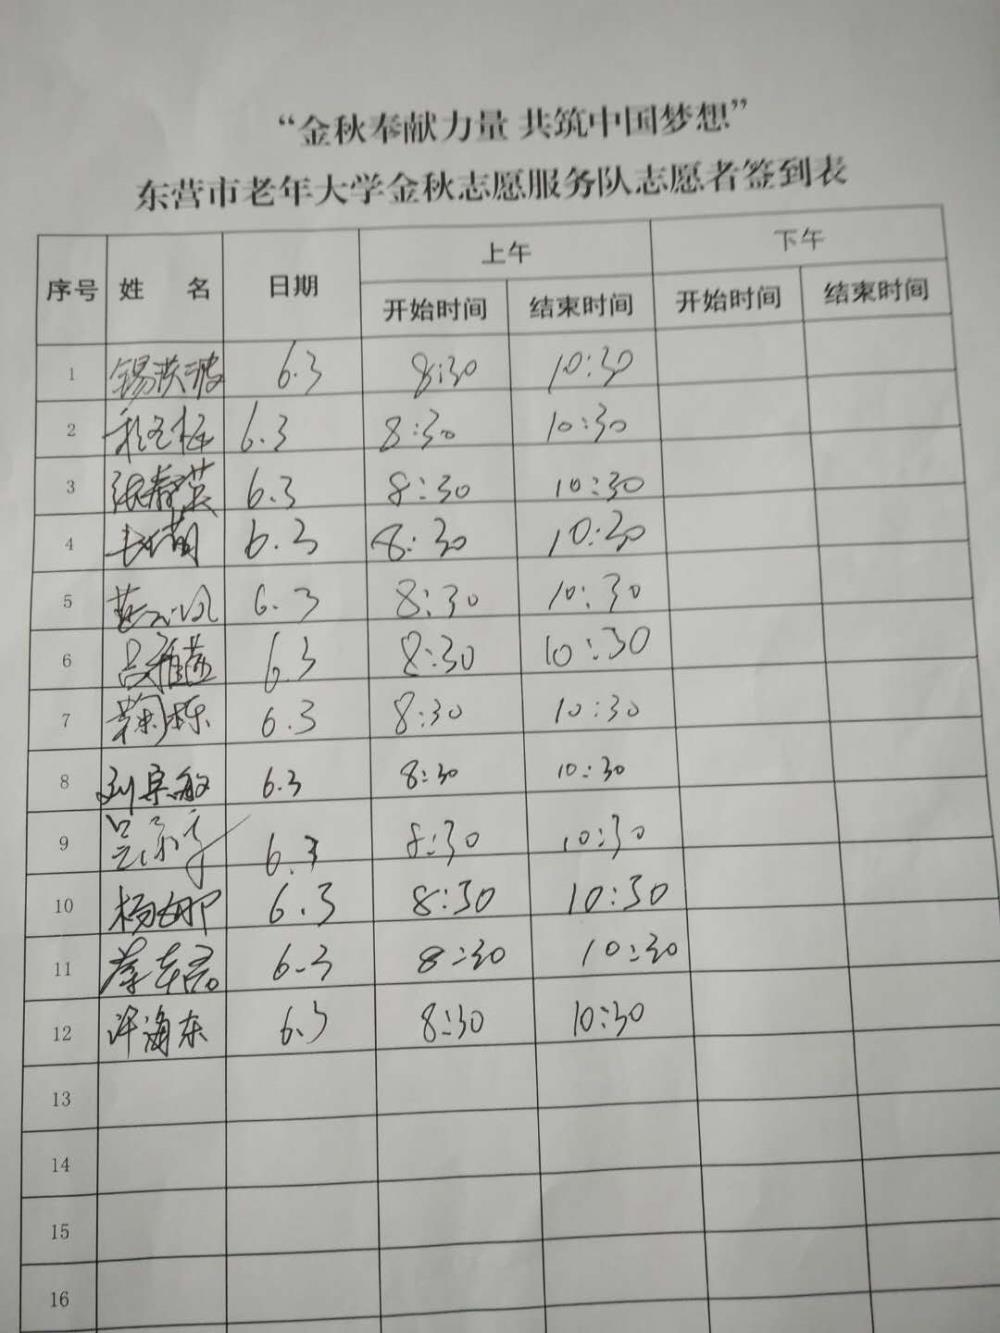 “金秋奉献力量 共筑中国梦想”
东营市老年大学金秋志愿服务队志愿者签到表
序号 姓 名 日期 上午 下午
开始时间 结束时间 开始时间 结束时间
1 6.3 8:30 10:30
2 6.3 8:30 10:30
3 张春英 6.3 8:30 10:30
4 6.3 8:30 10:30
5 6.3 8:30 10:30
6 吕雅燕 6.3 8:30 10:30
7 鞠栋 6.3 8:30 10:30
8 刘宗敏 6.3 8:30 10:30
9 6.3 8:30 10:30
10 杨娜 6.3 8:30 10:30
11 6.3 8:30 10:30
12 许海东 6.3 8:30 10:30
13
14
15
16